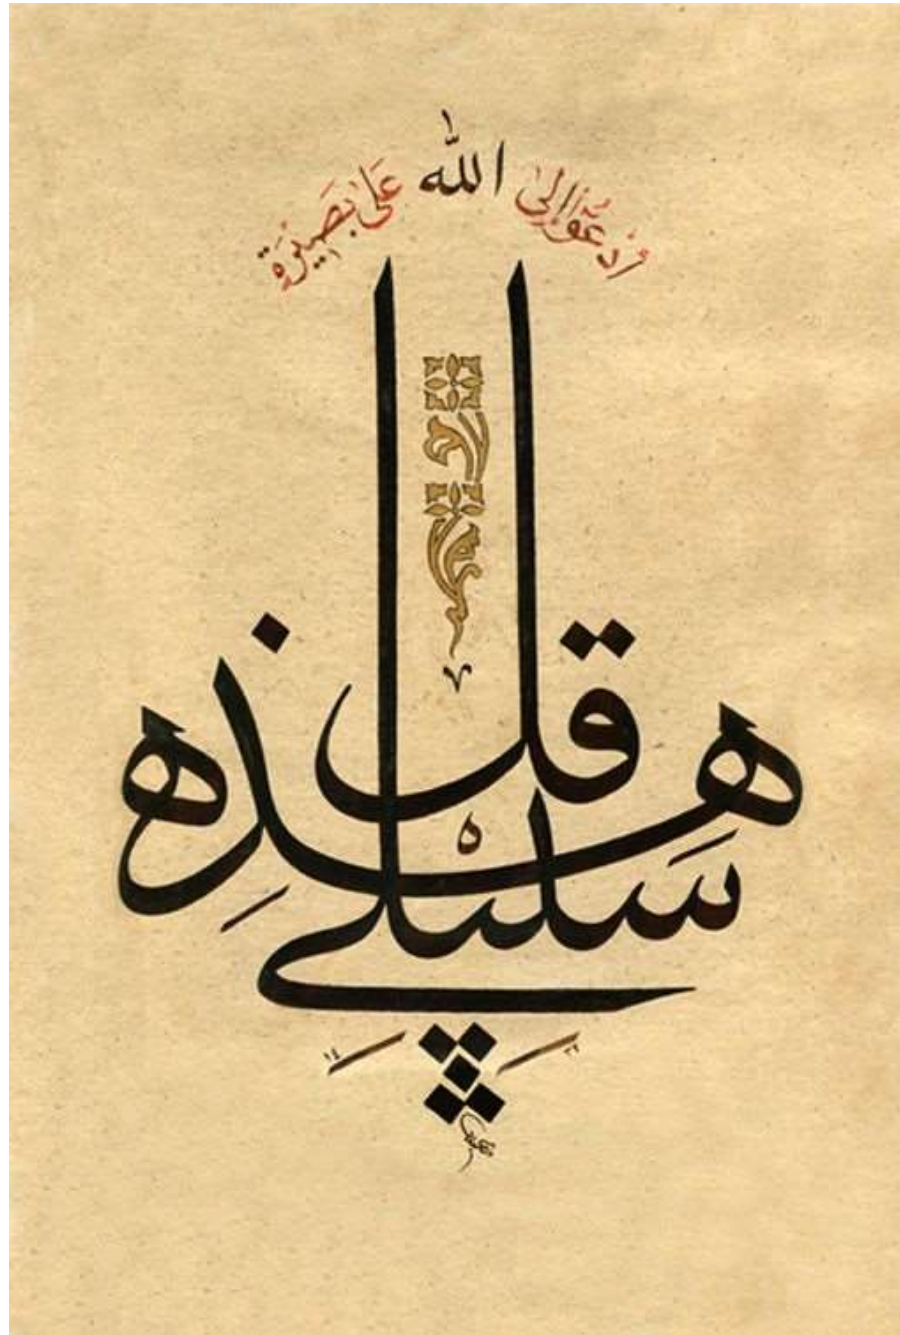 أَدْعُو إِلَى الله عَلَى بَصِيرَةٍ
قل
هذه
سبيلي
١٤ ٣٢